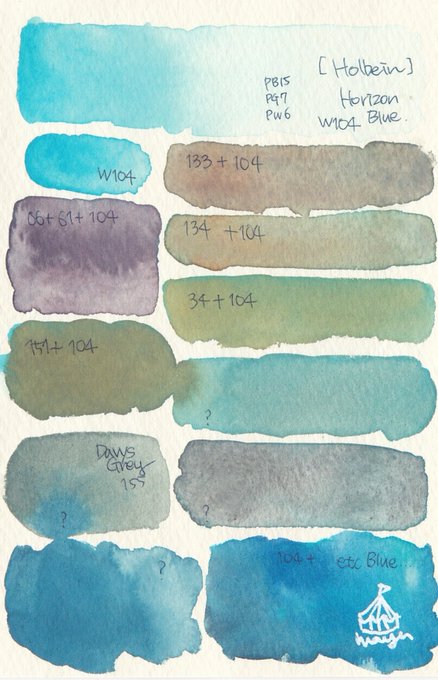 [Holbein]
PB15
PG7
PW6
Horizon
W104 Blue.
W104
133 + 104
66+61+104
134 +104
34+104
151+ 104
?
Davys
Grey
155
?
?
?
104+ etc Blue...